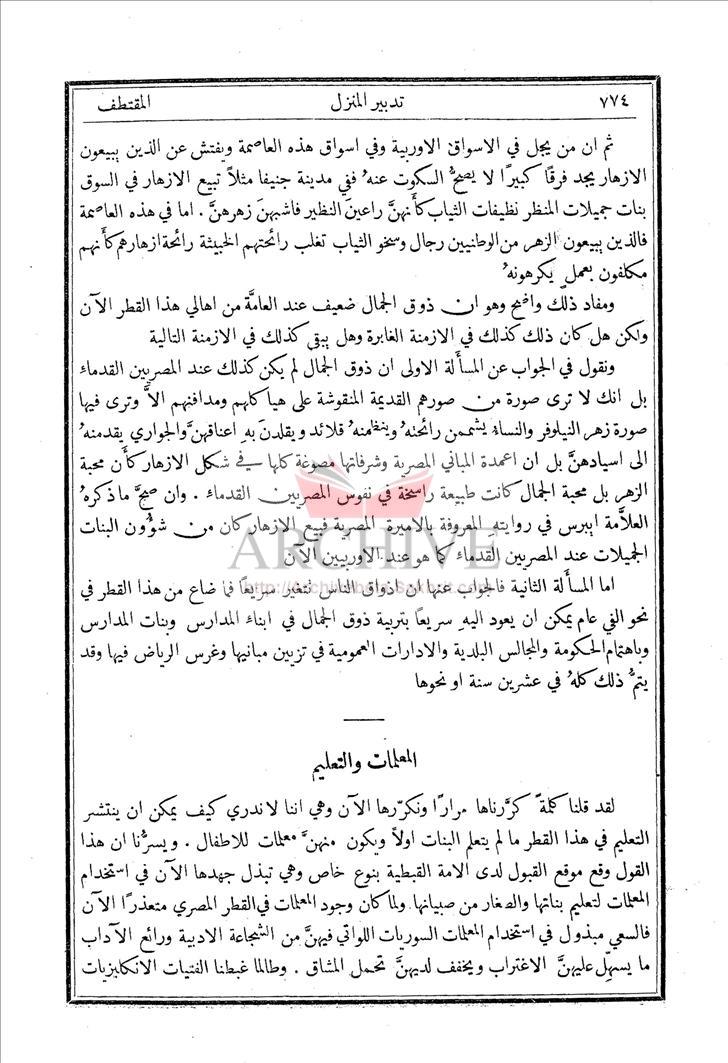 ٧٧٤ تدبير المنزل المقتطف
ثم ان من يجل في الاسواق الاوربية وفي اسواق هذه العاصمة ويفتش عن الذين يبيعون
الازهار يجد فرقًا كبيرًا لا يصحُّ السكوت عنهُ ففي مدينة جنيفا مثلاً تبيع الازهار في السوق
بنات جميلات المنظر نظيفات الثياب كأَنهنَّ راعينَ النظير فاشبهنَ زهرهنَّ . اما في هذه العاصمة
فالذين يبيعون الزهر من الوطنيين رجال وسخو الثياب تغلب رائحتهم الخبيثة رائحة ازهارهم كأَنهم
مكلفون بعملٍ يكرهونهُ
ومفاد ذلك واضح وهو ان ذوق الجمال ضعيف عند العامَّة من اهالي هذا القطر الآن
ولكن هل كان ذلك كذلك في الازمنة الغابرة وهل يبقى كذلك في الازمنة التالية
ونقول في الجواب عن المسأَلة الاولى ان ذوق الجمال لم يكن كذلك عند المصريين القدماء
بل انك لا ترى صورة من صورهم القديمة المنقوشة على هياكلهم ومدافنهم الاَّ وترى فيها
صورة زهر النيلوفر والنساء يشممن رائحتهُ وينظمنهُ قلائد ويقلدنَ بهِ اعناقهنَّ والجواري يقدمنهُ
الى اسيادهنَّ بل ان اعمدة المباني المصرية وشرفاتها مصوغة كلها في شكل الازهار كأن محبة
الزهر بل محبة الجمال كانت طبيعة راسخة في نفوس المصريين القدماء . وان صحَّ ما ذكرهُ
العلاَّمة ايبرس في روايتهِ المعروفة بالاميرة المصرية فبيع الازهار كان من شؤُون البنات
الجميلات عند المصريين القدماء كما هو عند الاوربيين الآن
ARCHIVE
اما المسأَلة الثانية فالجواب عنها ان اذواق الناس نتغير سريعًا فما ضاع من هذا القطر في
نحو الفي عام يمكن ان يعود اليهِ سريعًا بتربية ذوق الجمال في ابناء المدارس وبنات المدارس
وباهتمام الحكومة والمجالس البلدية والادارات العمومية في تزيين مبانيها وغرس الرياض فيها وقد
يتمُّ ذلك كلهُ في عشرين سنة او نحوها
المعلمات والتعليم
لقد قلنا كلمةً كرَّرناها مرارًا ونكرّرها الآن وهي اننا لا ندري كيف يمكن ان ينتشر
التعليم في هذا القطر ما لم يتعلم البنات اولاً ويكون منهنَّ معلمات للاطفال . ويسرُّنا ان هذا
القول وقع موقع القبول لدى الامة القبطية بنوع خاص وهي تبذل جهدها الآن في استخدام
المعلمات لتعليم بناتها والصغار من صبيانها ولما كان وجود المعلمات في القطر المصري متعذرًا الآن
فالسعي مبذول في استخدام المعلمات السوريات اللواتي فيهنَّ من الشجاعة الادبية ورائع الآداب
ما يسهّل عليهنَّ الاغتراب ويخفف لديهنَّ تحمل المشاق . وطالما غبطنا الفتيات الانكليزيات